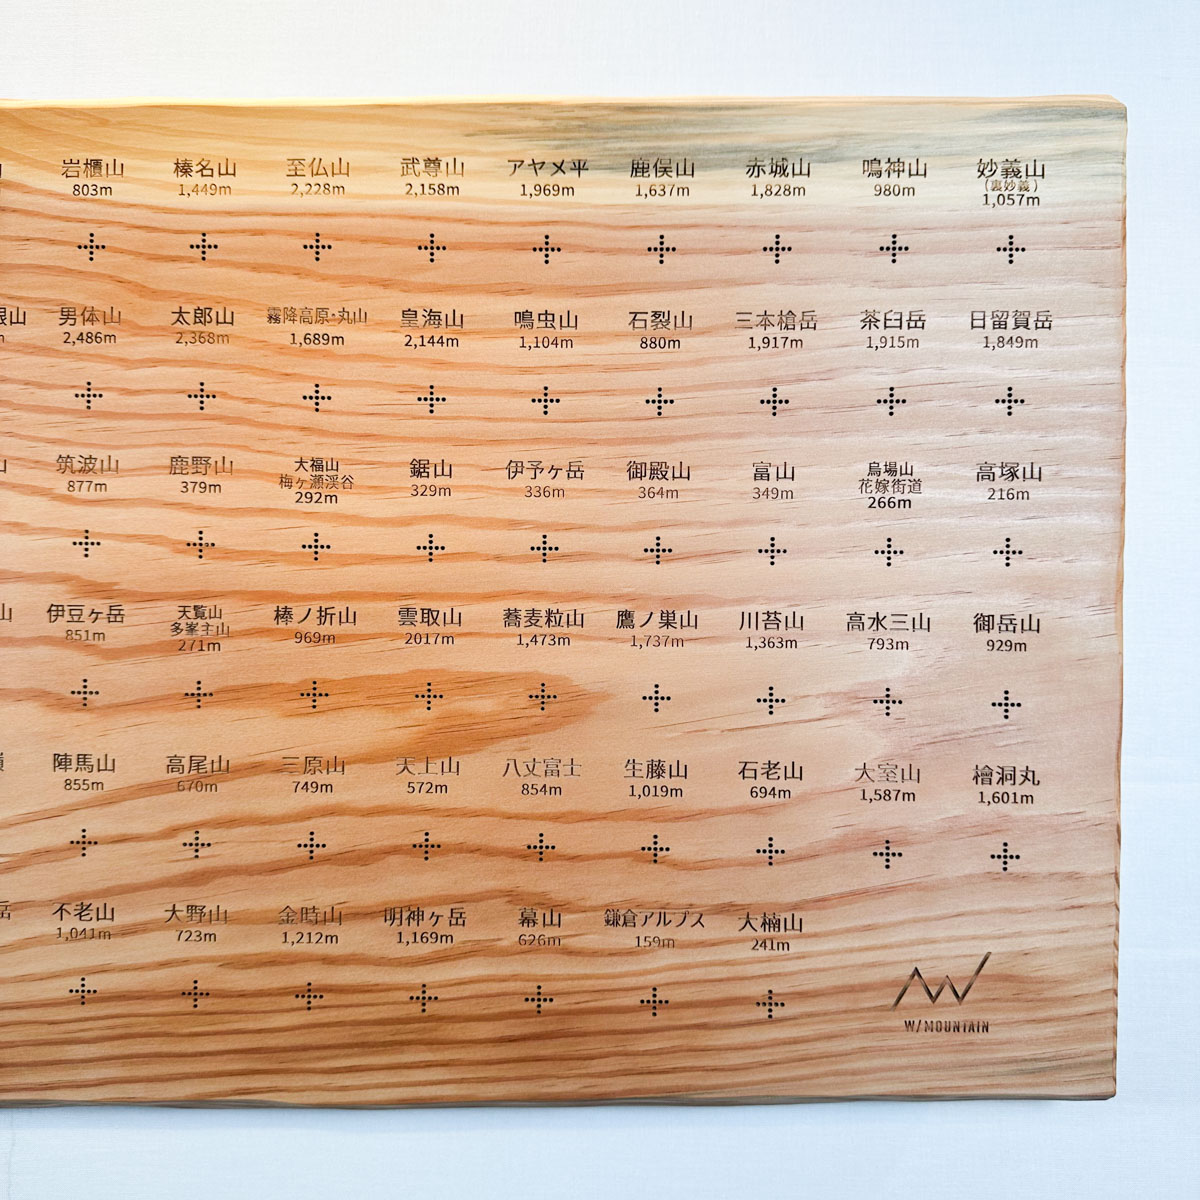 山 岩櫃山 榛名山 至仏山 武尊山 アヤメ平 鹿俣山 赤城山 鳴神山 妙義山
(裏妙義)
803m 1,449m 2,228m 2,158m 1,969m 1,637m 1,828m 980m 1,057m
根山 男体山 太郎山 霧降高原・丸山 皇海山 鳴虫山 石裂山 三本槍岳 茶臼岳 日留賀岳
m 2,486m 2,368m 1,689m 2,144m 1,104m 880m 1,917m 1,915m 1,849m
山 筑波山 鹿野山 大福山 鋸山 伊予ヶ岳 御殿山 富山 烏場山 高塚山
梅ヶ瀬渓谷 花嫁街道
877m 379m 292m 329m 336m 364m 349m 266m 216m
山 伊豆ヶ岳 天覧山 棒ノ折山 雲取山 蕎麦粒山 鷹ノ巣山 川苔山 高水三山 御岳山
多峯主山
851m 271m 969m 2017m 1,473m 1,737m 1,363m 793m 929m
陣馬山 高尾山 三原山 天上山 八丈富士 生藤山 石老山 大室山 檜洞丸
855m 670m 749m 572m 854m 1,019m 694m 1,587m 1,601m
岳 不老山 大野山 金時山 明神ヶ岳 幕山 鎌倉アルプス 大楠山
1,041m 723m 1,212m 1,169m 626m 159m 241m
W/MOUNTAIN